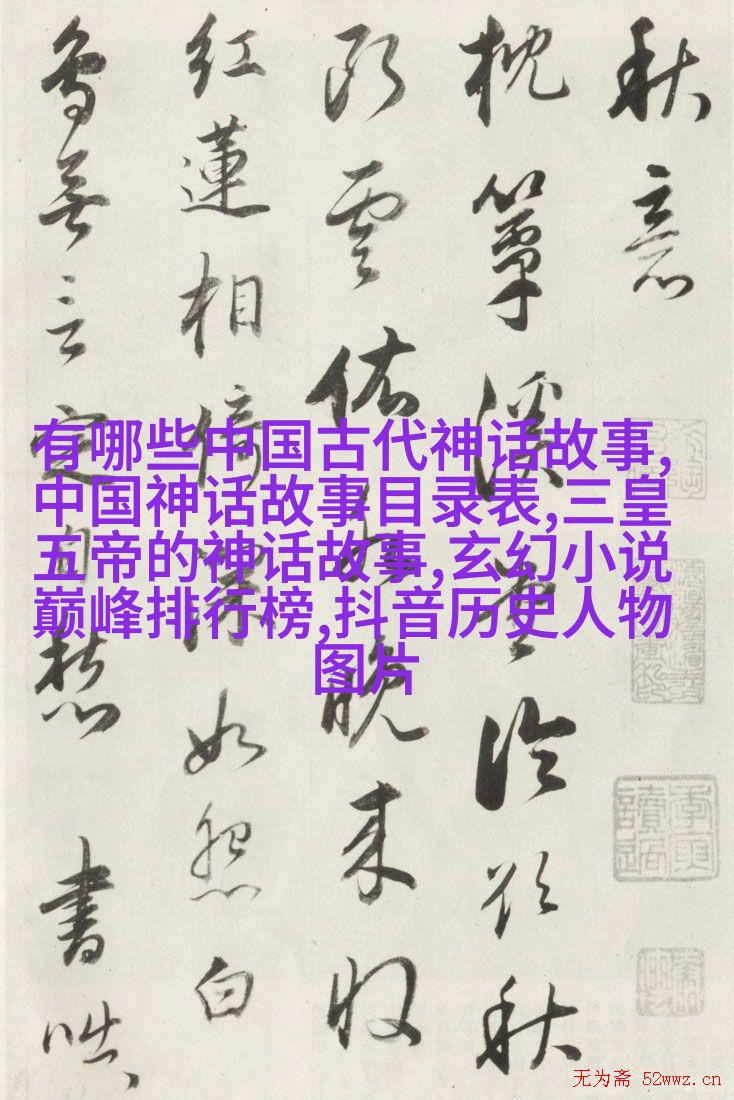 秋意
枕簟溪堂冷欲秋
断雲依水晚来收
红蓮相倚渾如白
鸟無言定自愁 書咄
有哪些中国古代神话故事,
中国神话故事目录表,三皇
五帝的神话故事,玄幻小说
巅峰排行榜,抖音历史人物
图片
无为斋 52wwz.cn